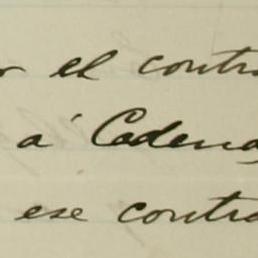 r el contr
á Cadena
ese contra